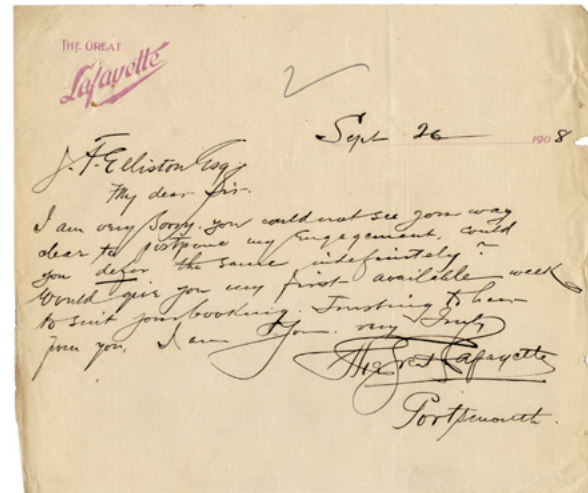 THE GREAT
Lafayette
Sept 26 1908
J. F. Elliston Esq
My dear Sir.
I am very sorry you could not see your way
clear to postpone my Engagement, could
you defer the same indefinitely?
Would give you my first available week
to suit your booking. Trusting to hear
from you, I am Yours very Truly
The Great Lafayette
Portsmouth.